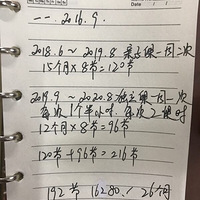 一. 2016.9.
2018.6～2019.8 一周一次
15个月×8节=120节
2019.9～2020.8 一周一次
每次1个半小时，每次2课时
12个月×8节=96节
120节+96节=216节
192节 16280./26个月